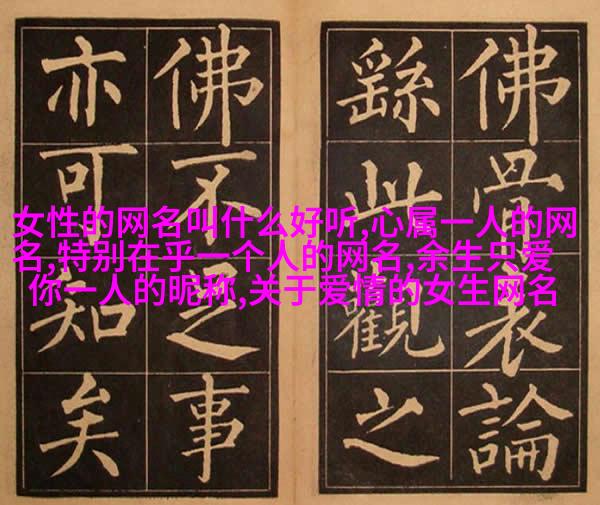 佛骨論
繇此觀之
佛不事
亦可知矣
女性的网名叫什么好听,心属一人的网
名,特别在乎一个人的网名,余生只爱
你一人的昵称,关于爱情的女生网名